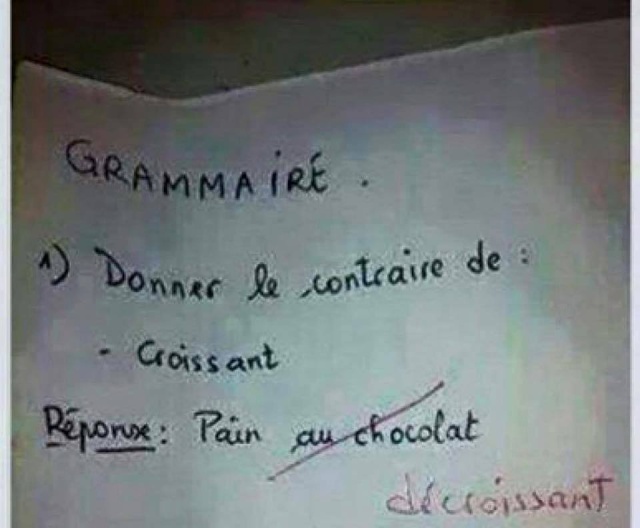 GRAMMAIRE.
1) Donner le contraire de :
- Croissant
Réponse : Pain au chocolat
décroissant